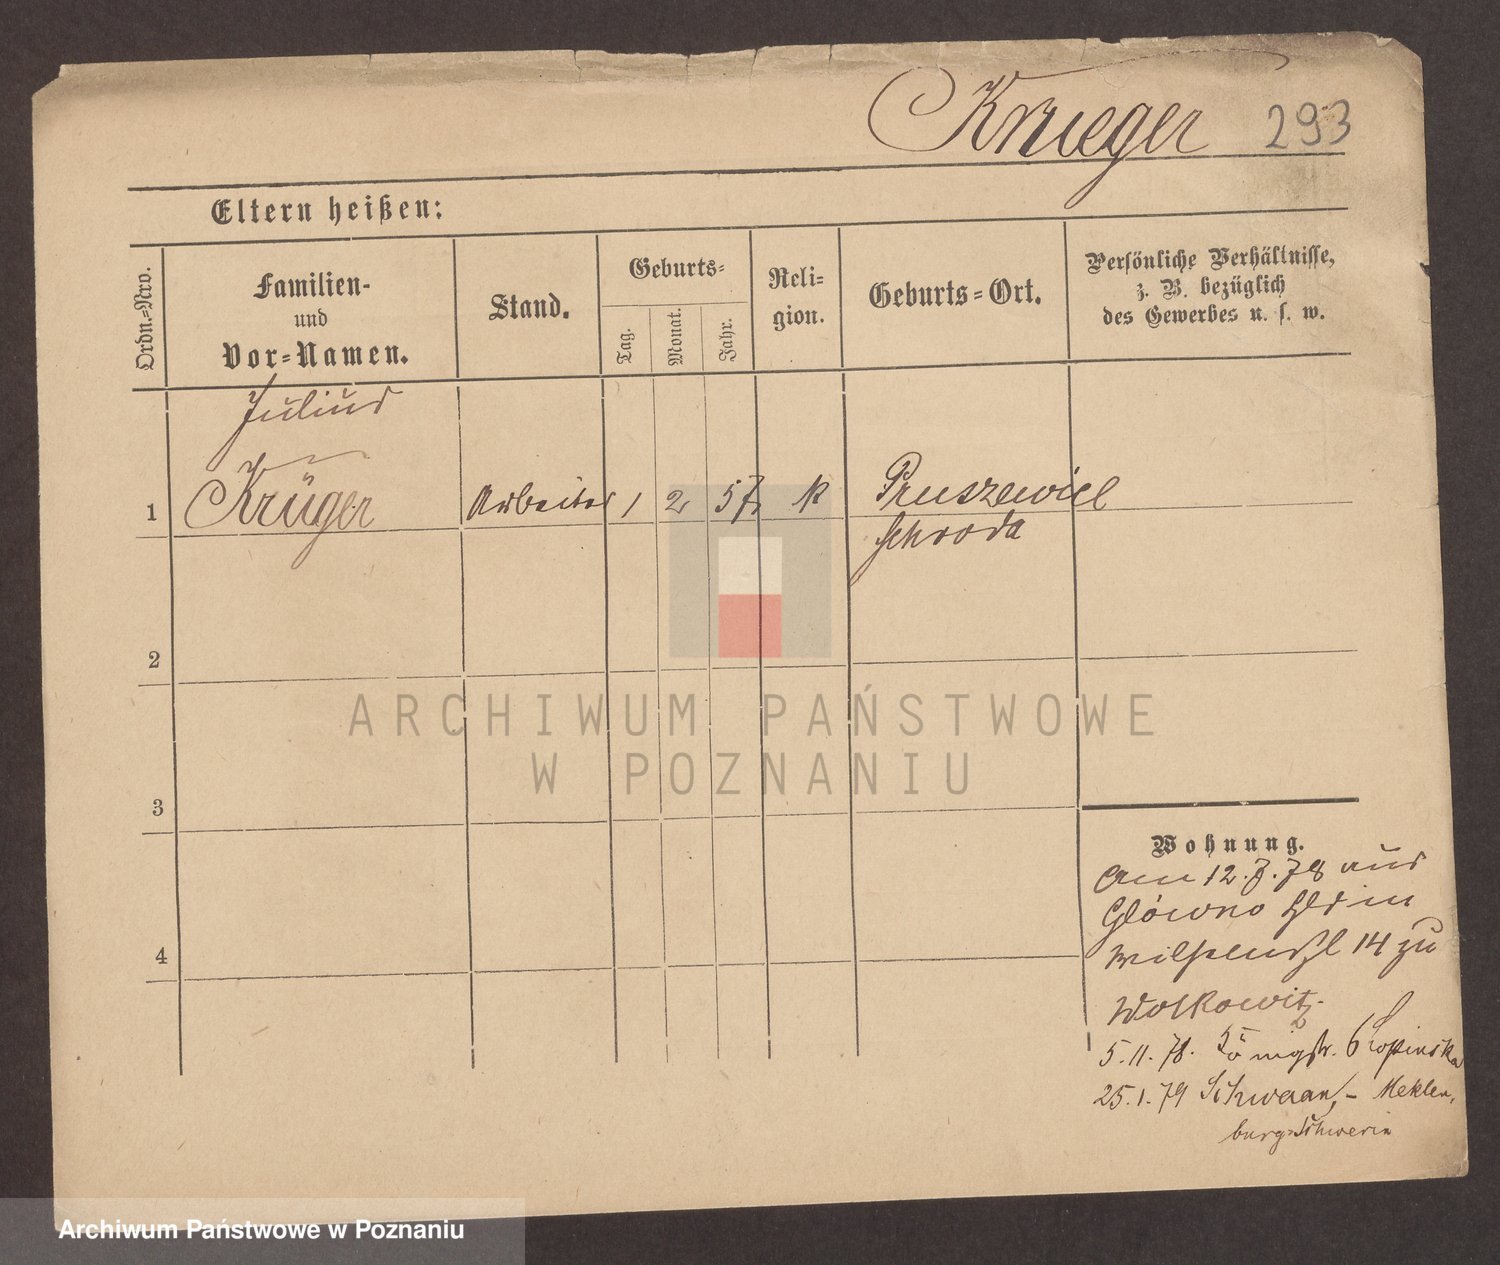 Krueger 293
Eltern heißen:
Ordn.-Nro.
Familien-
und
Vor-Namen.
Stand.
Geburts-
Tag.
Monat.
Jahr.
Reli-
gion.
Geburts-Ort.
Persönliche Verhältnisse,
z. B. bezüglich
des Gewerbes u. s. w.
Julius
1 Krüger Arbeiter 1 2 57 K Pruszewiec
Schroda
2
3
4
Wohnung.
Am 12.7.78 aus
Głowno hier in
14 zu
Wolkowitz
5.11.78. Königstr. 6 Lopinska
25.1.79 Schwaan, - Meklen,
burg-Schwerin
ARCHIWUM PAŃSTWOWE
W POZNANIU
Archiwum Państwowe w Poznaniu